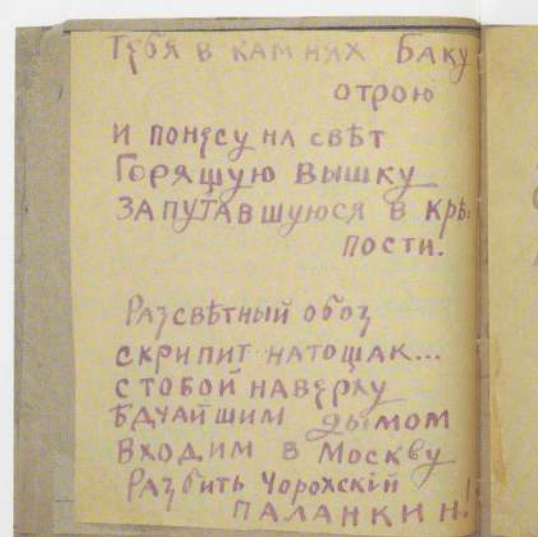 Тебя в камнях Баку
отрою
И понесу на свѣт
Горящую вышку
запутавшуюся в крѣ-
пости.
Разсвѣтный обоз
скрипит натощак...
с тобой наверху
ѣдчайшим дымом
входим в Москву
Разбить Чорохскій
паланкин!